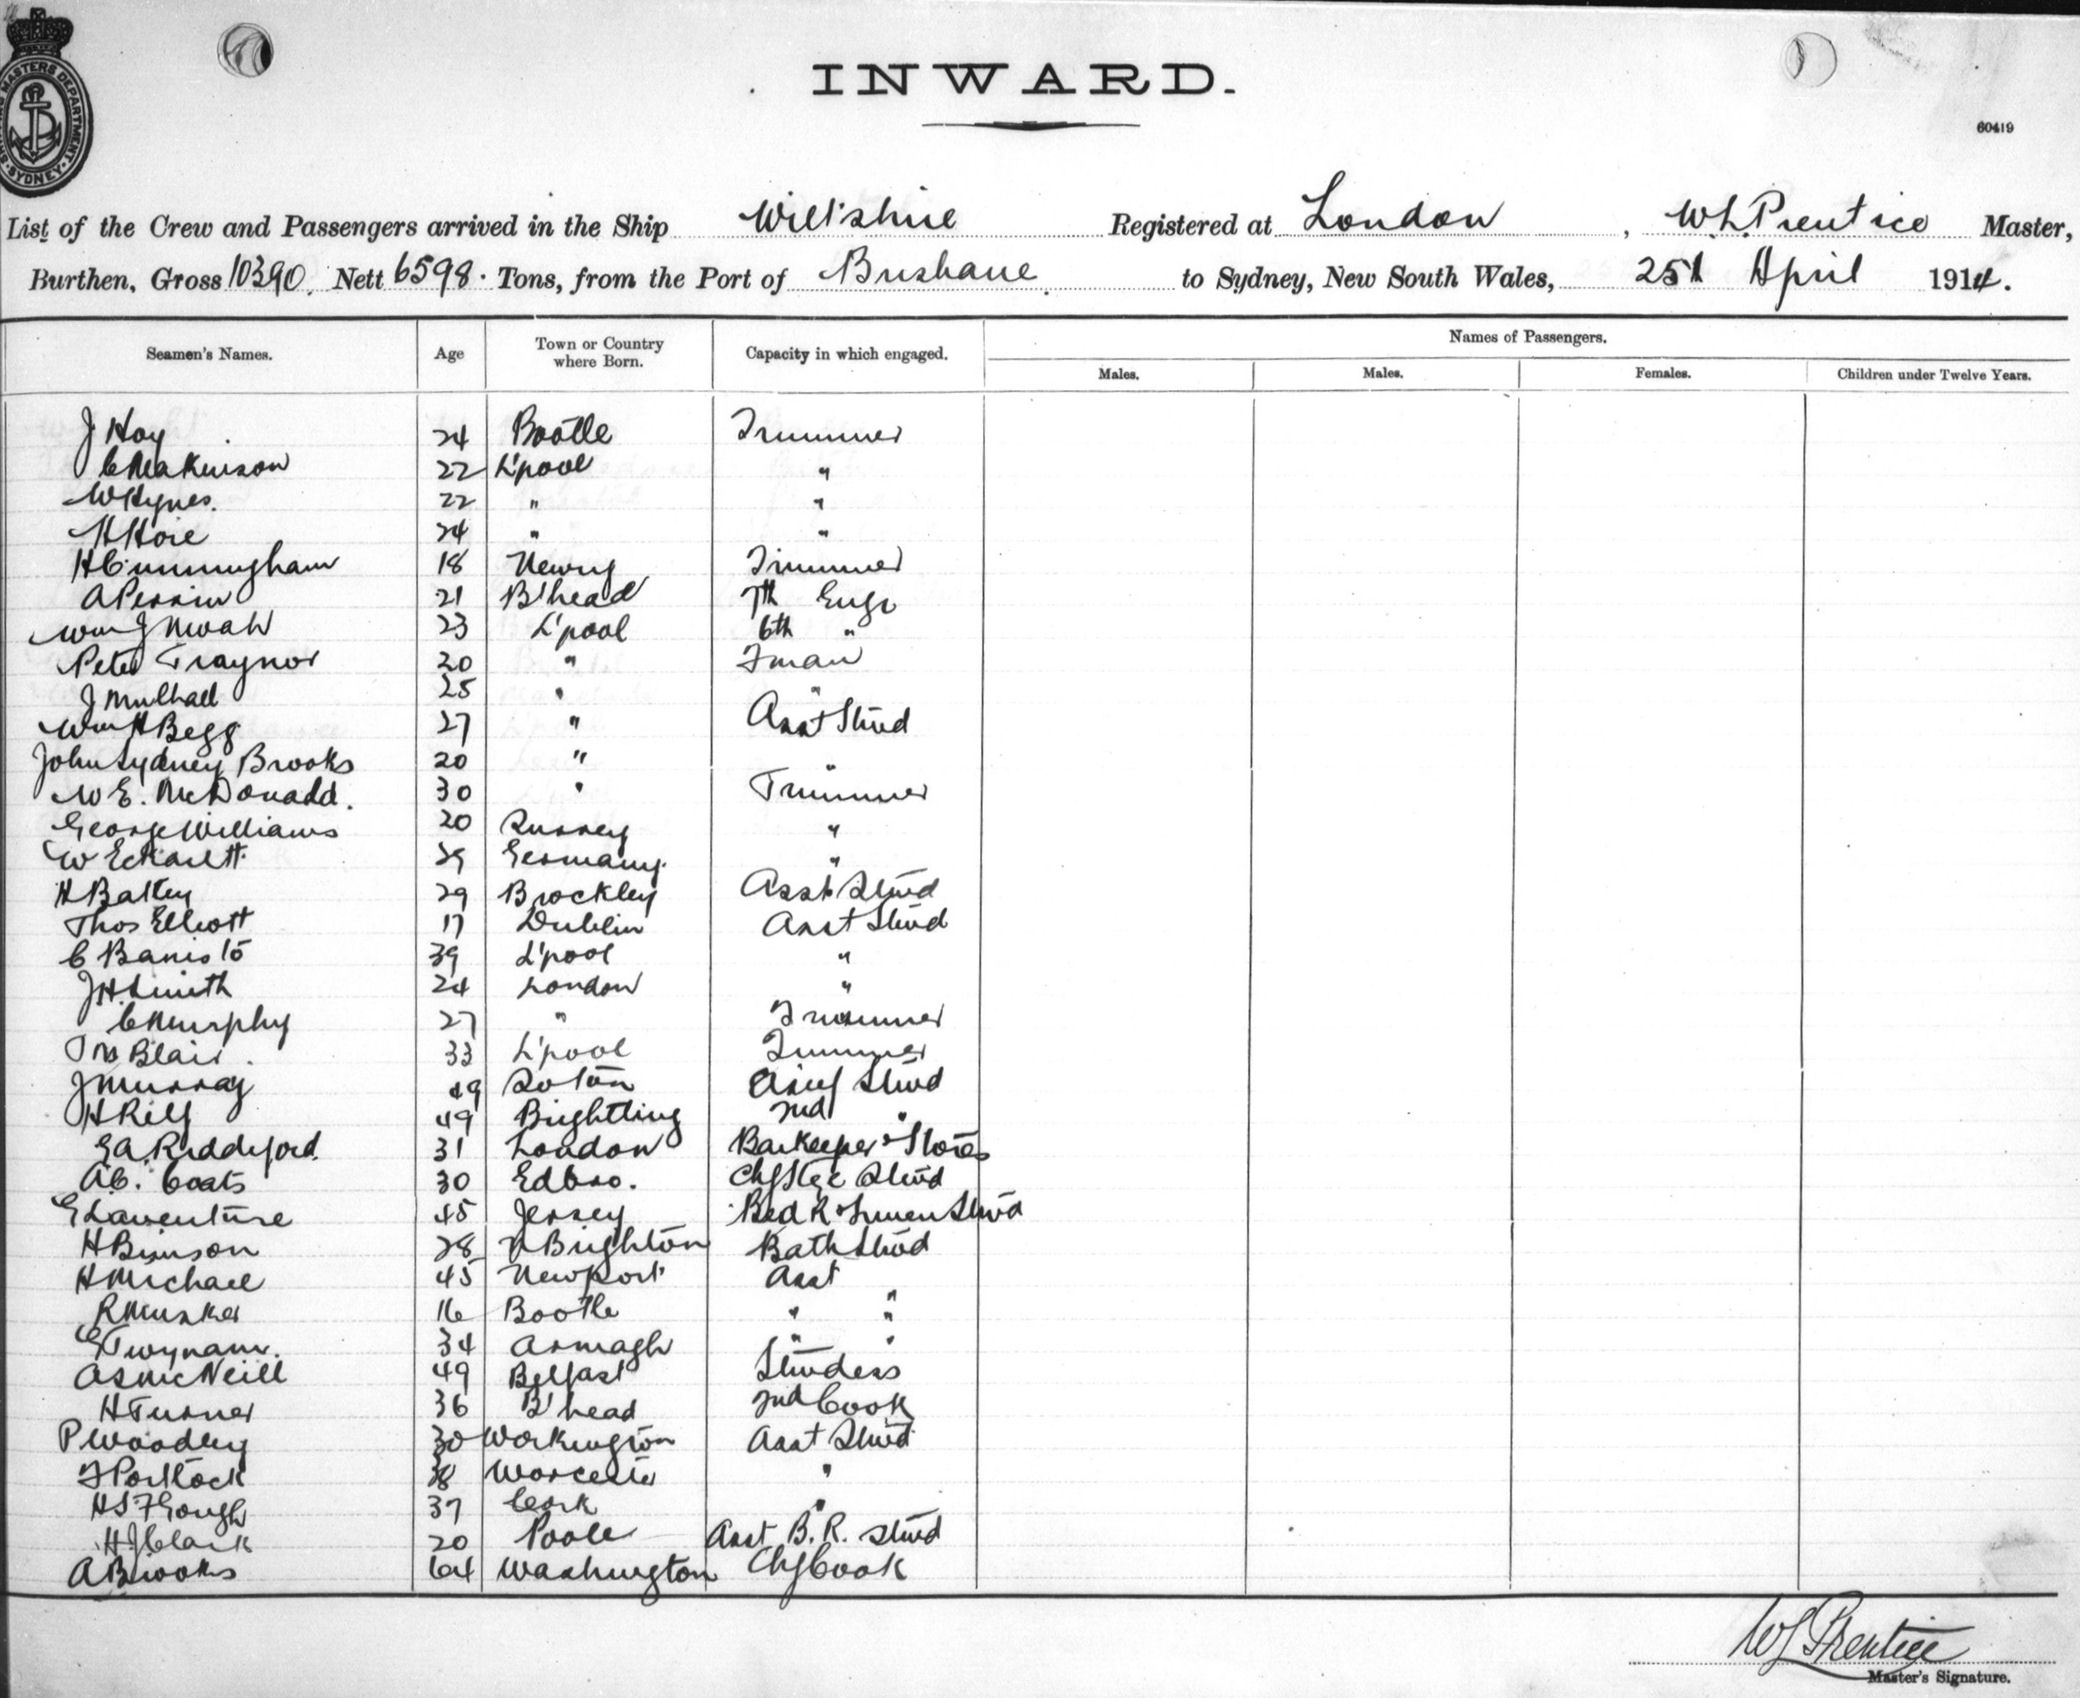 INWARD.
60419
List of the Crew and Passengers arrived in the Ship Wiltshire Registered at London, W.L. Prentice Master,
Burthen, Gross 10390. Nett 6598. Tons, from the Port of Brisbane. to Sydney, New South Wales, 25th April 1914.
Seamen's Names. Age Town or Country where Born. Capacity in which engaged. Names of Passengers.
Males. Males. Females. Children under Twelve Years.
J Hoy 24 Bootle Trimmer
C Makinson 22 L'pool "
W Hynes. 22 " "
H Hoie 24 " "
H Cunningham 18 Newry Trimmer
A Perrin 21 B'head 7th Engr
Wm J 23 L'pool 6th "
Peter Traynor 20 " Fman
J Mulhall 25 " "
Wm H Begg 27 " Asst Stwd
John Sydney Brooks 20 " "
W E. McDonald. 30 " Trimmer
George Williams 20 Surrey "
W 29 Germany. "
H Batley 29 Brockley Asst Stwd
Thos Elliott 17 Dublin Asst Stwd
C Banister 39 L'pool "
J H Smith 24 London "
C Murphy 27 " Trimmer
Blair. 33 L'pool Trimmer
J Murray 49 Soton Stwd
H Rily 49 Brightling 2nd "
E A. Riddiford. 31 London Barkeeper & Stores
A C. Coats 30 Edbro. Chf Stge Stwd
E Laventure 45 Jersey Bed R & Linen Stwd
H Brinson 28 N Brighton Bath Stwd
H Michael 45 Newport Asst "
R Musker 16 Bootle " "
E Twynam. 34 Armagh " "
A S McNeill 49 Belfast Stwdess
H Turner 36 B'head 2nd Cook
P Woodley 30 Workington Asst Stwd
F Portlock 38 Worcester "
H S F Gough 37 Cork "
H J Clark 20 Poole Asst B.R. Stwd
A Brooks 64 Washington Chf Cook
W L Prentice
Master's Signature.